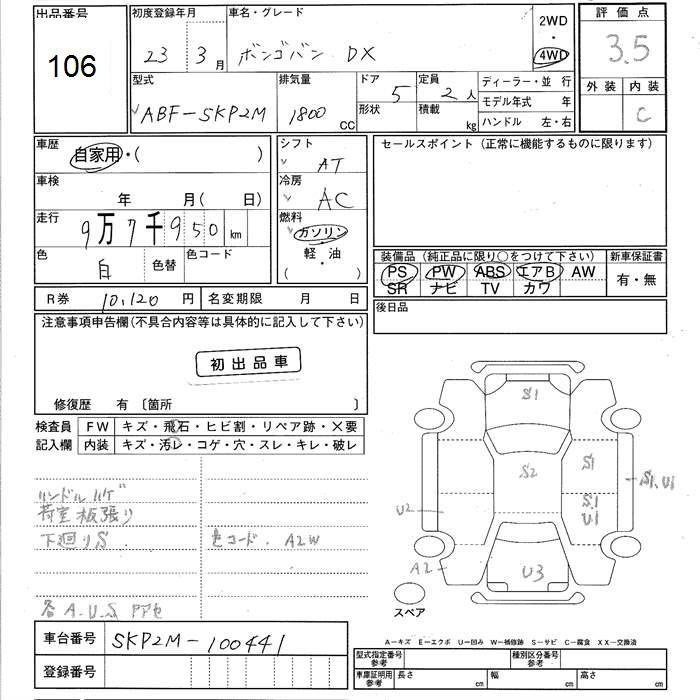 出品番号
106
初度登録年月
23 3月
車名・グレード
ボンゴバン DX
2WD
・
4WD
評価点
3.5
外装 内装
C
型式
ABF-SKP2M
排気量
1800 CC
ドア 5
形状
定員 2人
積載 kg
ディーラー・並行
モデル年式 年
ハンドル 左・右
車歴
自家用・( )
車検
年 月(日)
走行
9万7千950km
色
白 色替
色コード
シフト
AT
冷房
AC
燃料
ガソリン
・
軽・油
( )
セールスポイント(正常に機能するものに限ります)
装備品(純正品に限り○をつけて下さい)
PS PW ABS エアB AW
SR ナビ TV カワ
新車保証書
有・無
R券 10,120円
名変期限 月 日
後日品
注意事項申告欄(不具合内容等は具体的に記入して下さい)
初出品車
修復歴 有 〔箇所 〕
検査員
記入欄
FW キズ・飛石・ヒビ割・リペア跡・×要
内装 キズ・汚レ・コゲ・穴・スレ・キレ・破レ
ハンドルハゲ
荷室板張り
下廻りS
色コード. A2W
各A.U.S
S1
S2
S1
S1
U1
S1.U1
U2
A2
U3
スペア
車台番号 SKP2M-100441
登録番号
A-キズ E-エクボ U-凹み W-補修跡 S-サビ C-腐食 XX-交換済
型式指定番号
参考
種別区分番号
参考
車庫証明用
参考
長さ cm
幅 cm
高さ cm